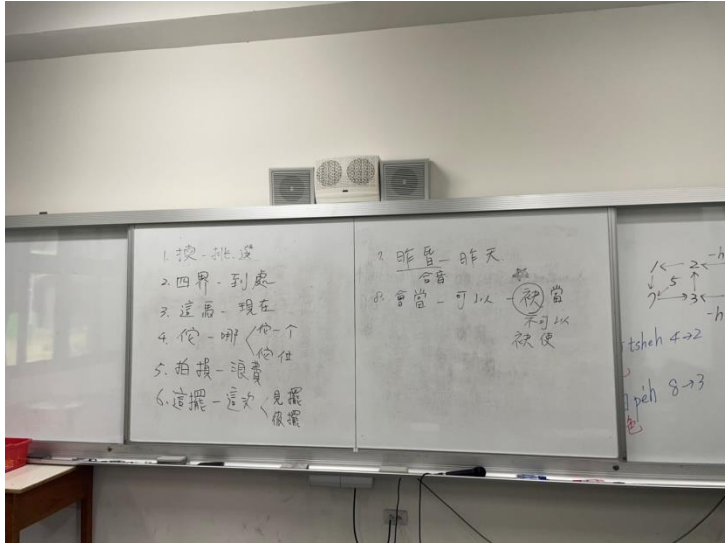 1. 揀-挑.選
2. 四界-到處
3. 這馬-現在
4. 佗-哪
佗一个
佗位
5. 拍損-浪費
6. 這擺-這次
見擺
後擺
7. 昨昏-昨天
合音
8. 會當-可以-袂當
不可以
袂使
1 ← 2 ← -h
5
7 → 3 ←
-h
tsheh 4→2
pe̍h 8→3
色